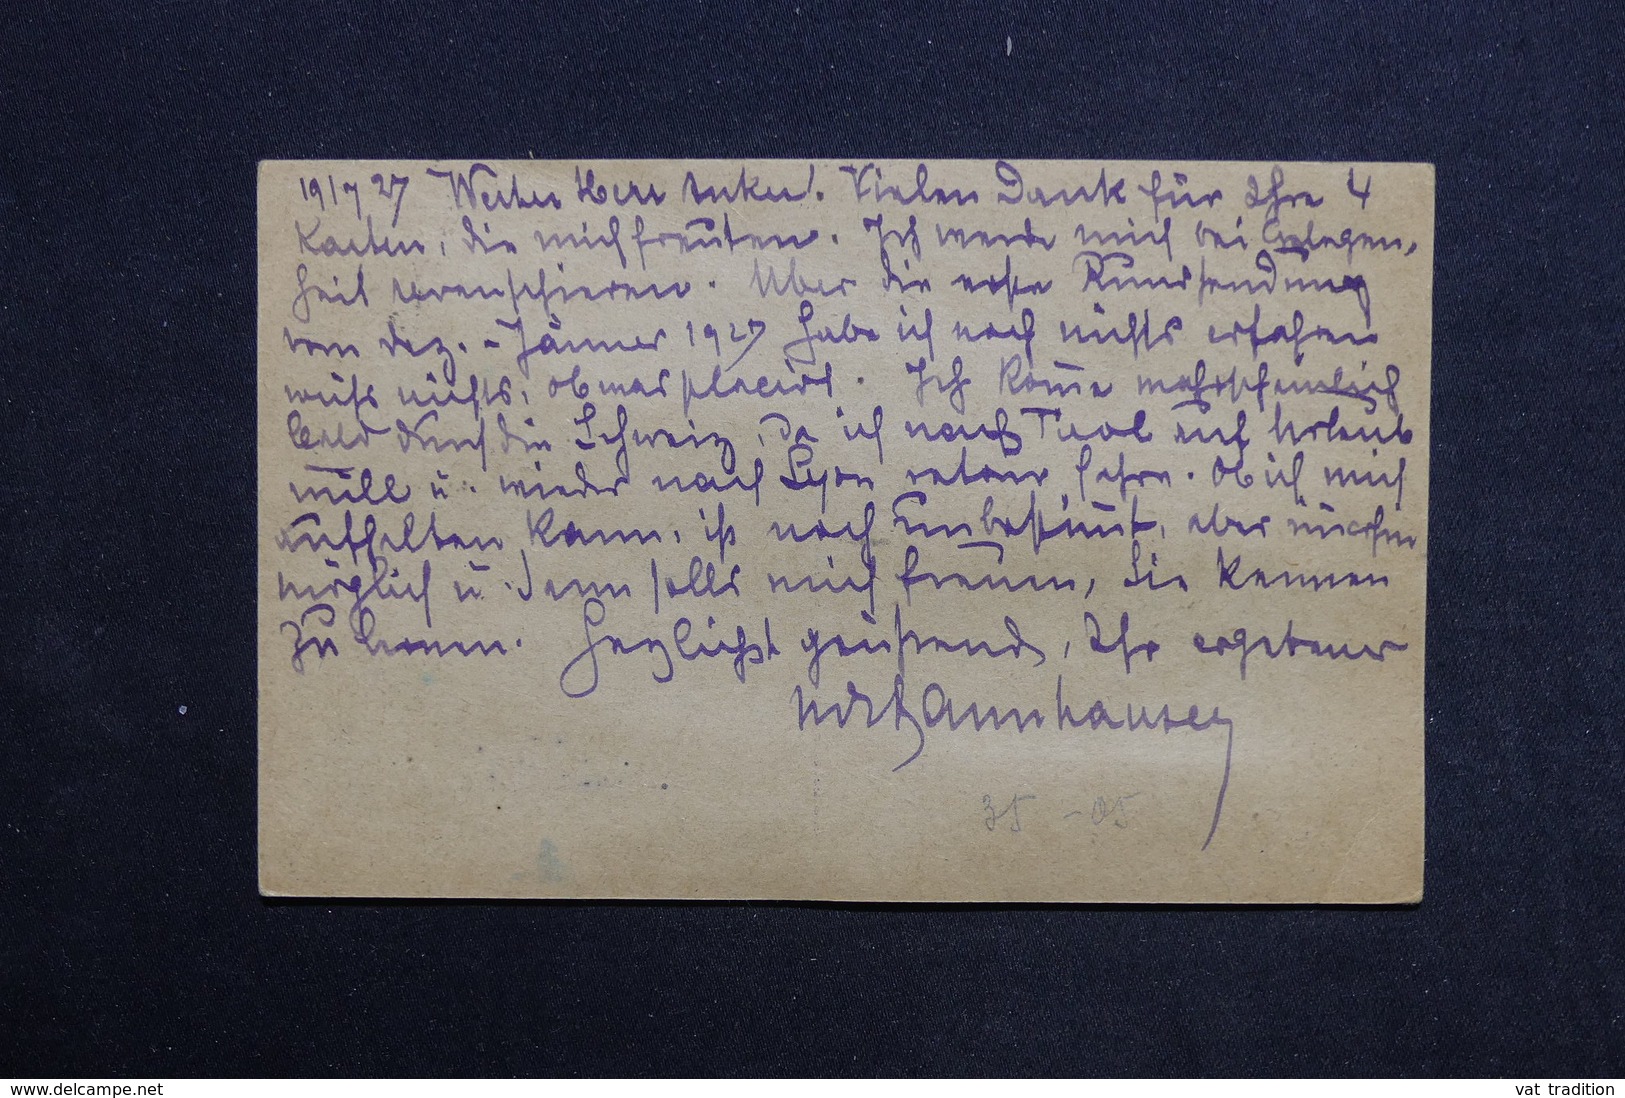 19/7 27 Werter Herr! Vielen Dank für Ihre 4
Karten, die mich freuten. Ich werde mich bei Gelegen-
heit revanschieren. Über die erste Rundsendung
vom Dez. - Jänner 1927 habe ich noch nichts erfahren
weiß nichts, ob was placiert. Ich kome wahrscheinlich
bald durch die Schweiz, da ich nach Tirol auf Urlaub
will u. wieder nach Lyon retour fahre. Ob ich mich
aufhalten kann, ist noch unbestimt, aber imerhin
möglich u. dann solls mich freuen, Sie kennen
zu lernen. Herzlichst grüßend, Ihr ergebener
Tannhauser
35 -
www.delcampe.net
vat tradition